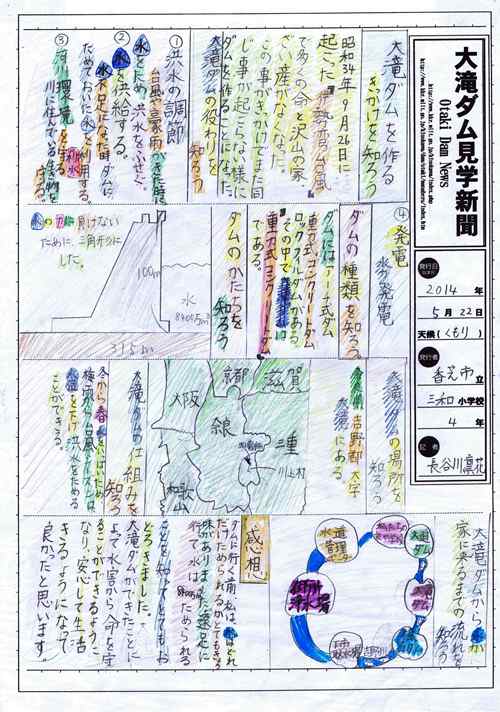 大滝ダム見学新聞
Otaki Dam News
発行日
2014年
5月22日
天候(くもり)
発行者
香芝市立
三和小学校
4年
記者
長谷川凛花
大滝ダムを作る
きっかけを知ろう
昭和34年9月26日に
起こった伊勢湾台風
で多くの命と沢山の家、
ざい産がなくなった。
この事がきっかけでまた同
じ事が起こらない様に
ダムを作ることにしました。
大滝ダムの役わりを
知ろう
①洪水の調節
台風や豪雨がきた時に
水をため、洪水をふせぐ。
②水を供給する。
水不足になった時、ダムに
ためておいた水を利用する。
③河川環境を守る。
川に住んでいる生物を
守る。
④発電
水力発電
ダムの種類を知ろう
ダムにはアーチ式ダム
重力式コンクリートダム
ロックフィルダムがある。
その中で大滝ダムは
重力式コンクリートダム
である。
ダムのかたちを
知ろう
水の力に負けない
ために、三角形に
した。
100m
水
315m
大滝ダムの場所を
知ろう
奈良県吉野郡大字
大滝にある
京都
滋賀
大阪
奈良
三重
川上村
和歌山
大滝ダムの仕組みを
知ろう
冬から春水をいっぱいため
梅雨から台風シーズンは
水位を下げ洪水をためる
ことができる。
大滝ダムから水が
家に来るまでの流れを
知ろう
大滝ダム
水道管理センター
御所浄水場
感想
ダムに行く前、私は、水はどれ
だけためられるかとてもきょう
味がありました。遠足に
行って水は8400万m³ためられる
ことを知ってとてもお
どろきました。
大滝ダムができたことに
よって水害から命を守
ることができるように
なり、安心して生活
できるようになって
良かったと思います。